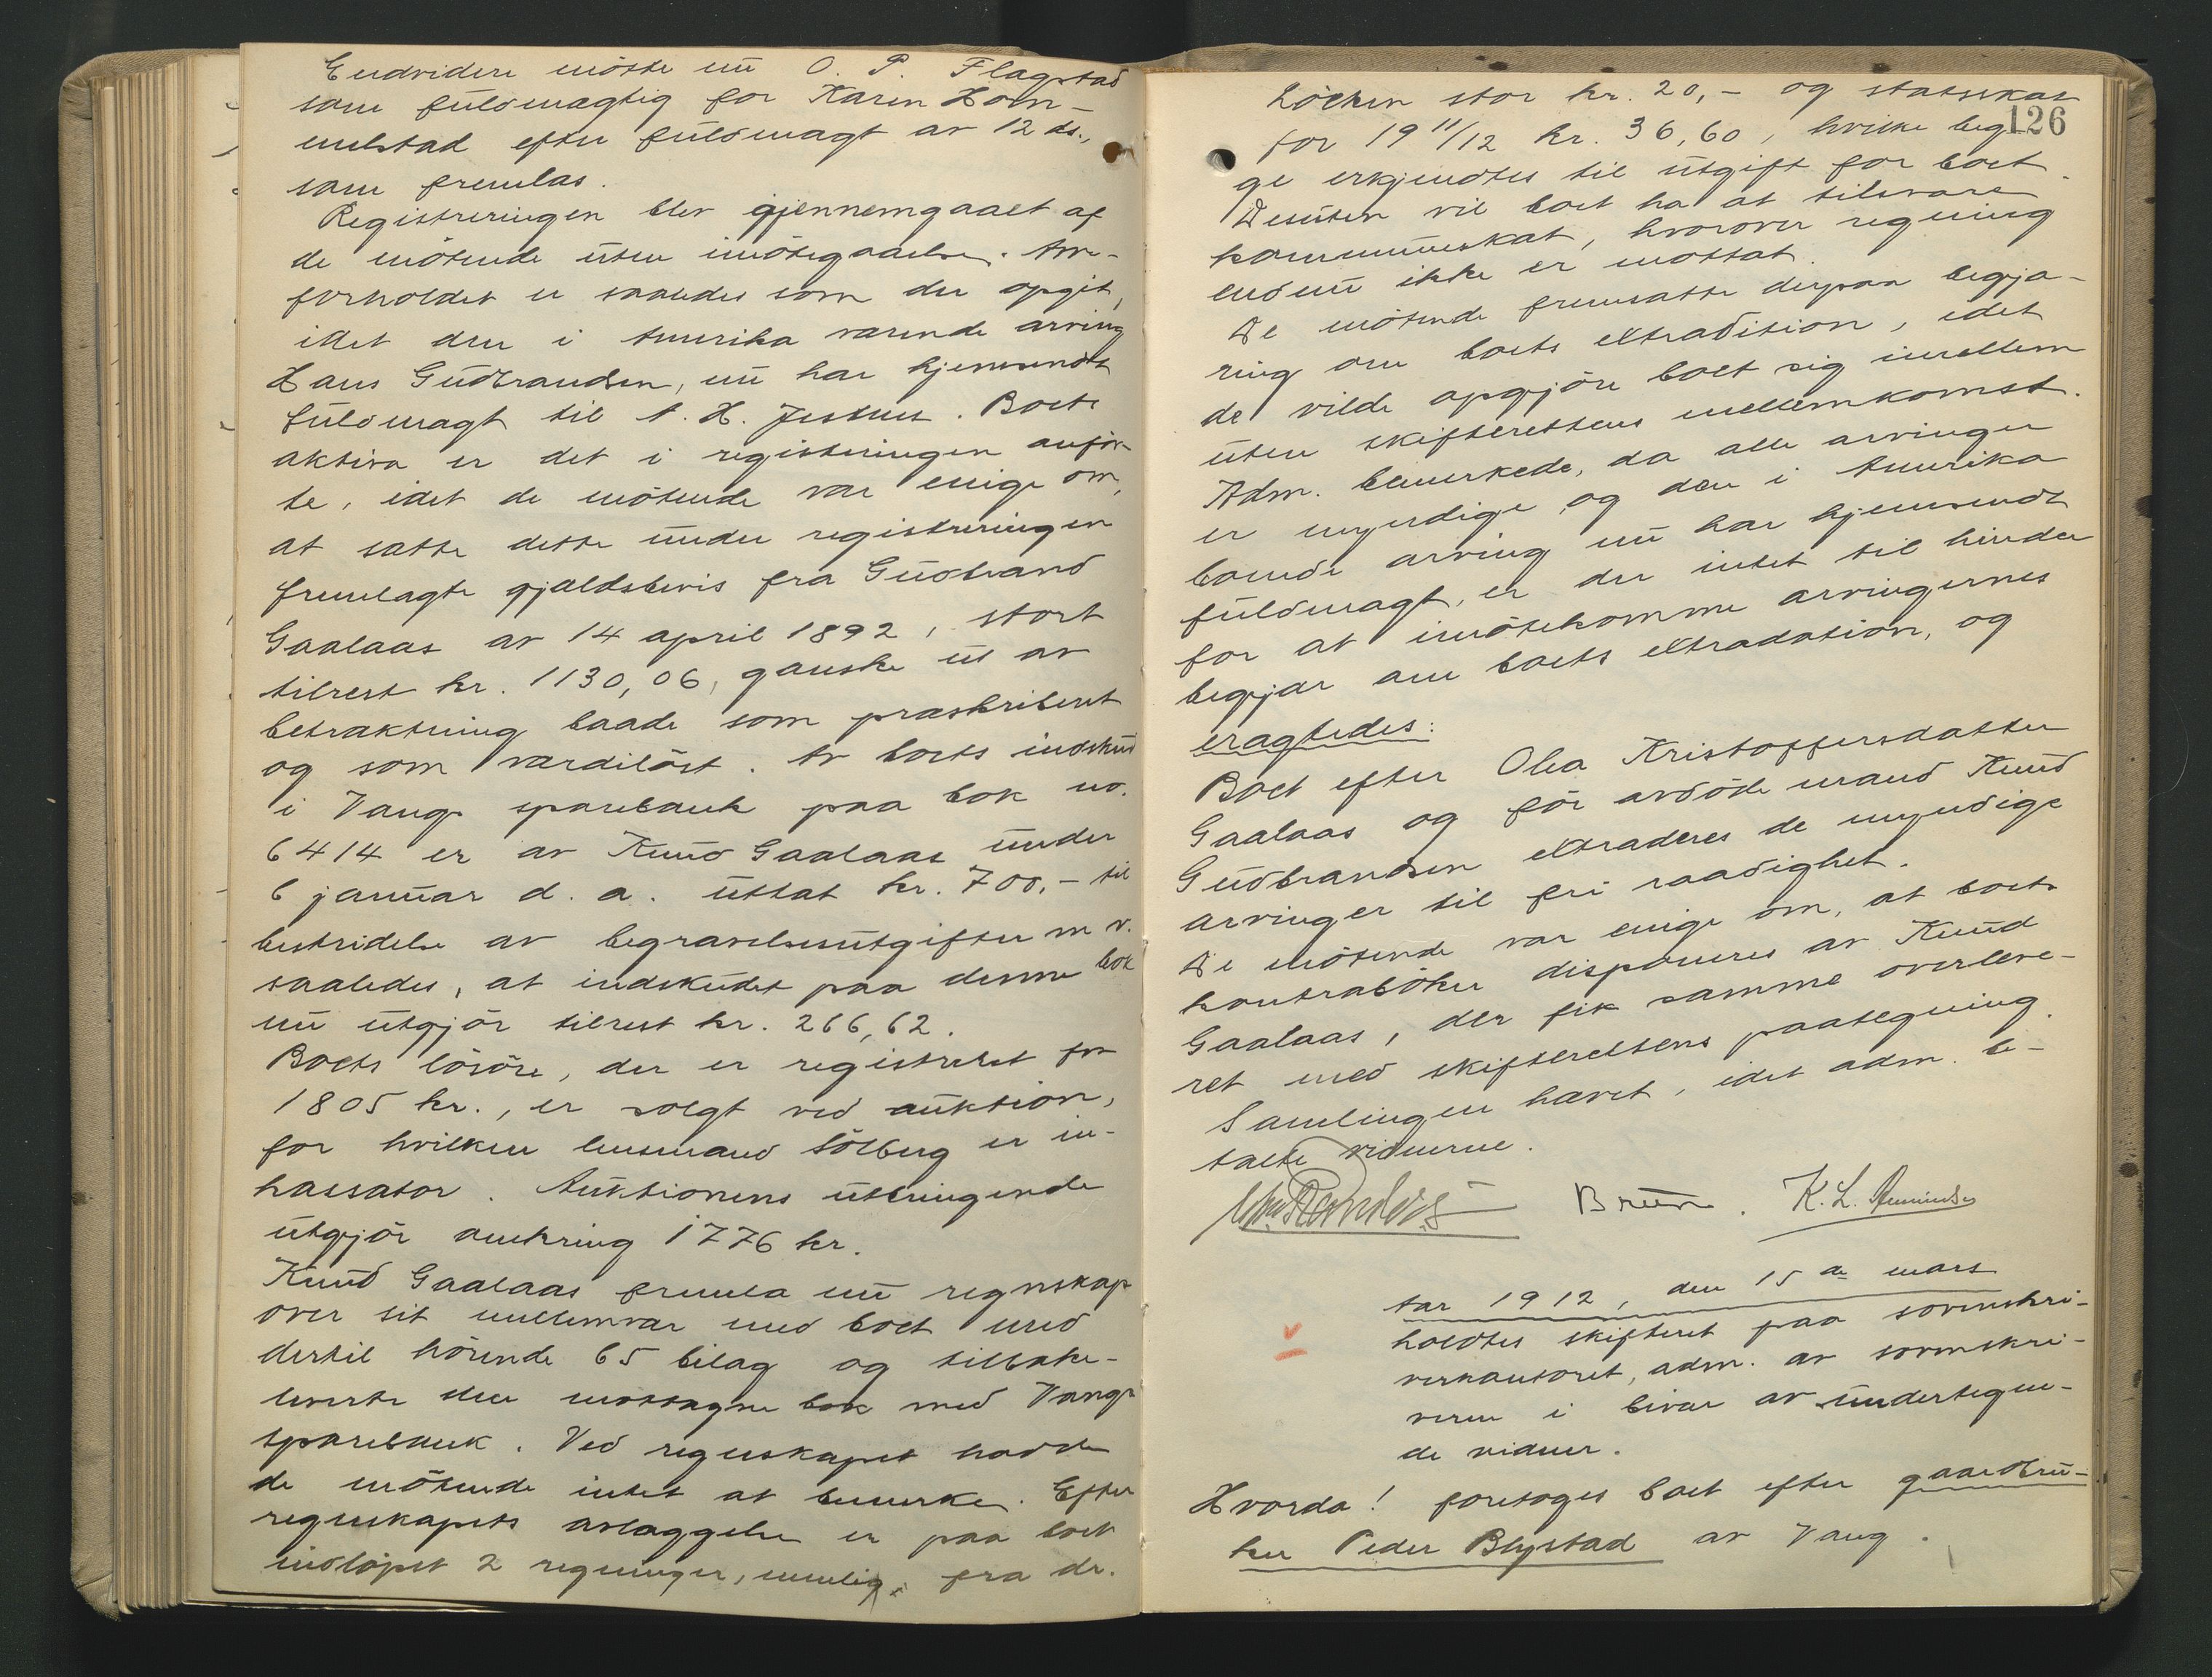 Endvidere mötte nu O. P. Flagstad
som fuldmagtig for Karen Hom-
melstad efter fuldmagt av 12 ds.,
som fremlas.
Registreringen blev gjennemgaaet af
de mötende uten imötegaaelse. Arve-
forholdet er saaledes som der opgit,
idet den i Amerika værende arving
Hans Gudbrandsen, nu har hjemsendt
fuldmagt til A. H. Jestnes. Boets
aktiva er det i registreringen anför-
te, idet de mötende var enige om,
at sætte dette under registreringen
fremlagte gjældsbevis fra Gudbrand
Gaalaas av 14 april 1892, stort
tilrest kr. 1130,06, ganske ut av
betraktning baade som præskriberet
og som værdilöst. Av boets indskud
i Vangs sparebank paa bok no.
6414 er av Knud Gaalaas under
6 januar d. a. uttat kr. 700,- til
bestridelse av begravelsesutgifter m v.
saaledes, at indskudet paa denne bok
nu utgjör tilrest kr. 266,62.
Boets lösöre, der er registreret for
1805 kr., er solgt ved auktion,
for hvilken lensmand Sölberg er in-
kassator. Auktionens utbringende
utgjör omkring 1776 kr.
Knud Gaalaas fremla nu regnskap
over sit mellemvær med boet med
dertil hörende 65 bilag og tilbake-
leverte den mottagne bok med Vangs
sparebank. Ved regnskapet hadde
de mötende intet at bemerke. Efter
regnskapets avlæggelse er paa boet
indlöpet 2 regninger, nemlig: fra dr.
126
Löchen stor kr. 20,- og statsskat
for 19 11/12 kr. 36,60, hvilke beg
ge erkjendtes til utgift for boet.
Desuten vil boet ha at tilsvare
kommuneskat, hvorover regning
endnu ikke er mottat.
De mötende fremsatte derpaa begjæ-
ring om boets extradition, idet
de vilde opgjöre boet sig imellem
uten skifterettens mellemkomst.
Adm. bemerkede, da alle arvinger
er myndige, og den i Amerika
boende arving nu har hjemsendt
fuldmagt, er der intet til hinder
for at imötekomme arvingernes
begjær om boets extradation, og
eragtedes:
Boet efter Olea Kristoffersdatter
Gaalaas og för avdöde mand Knud
Gudbrandsen extraderes de myndige
arvinger til fri raadighet.
De mötende var enige om, at boets
kontraböker disponeres av Knud
Gaalaas, der fik samme overleve-
ret med skifterettens paategning.
Samlingen hævet, idet adm. be-
talte vidnerne.
Brun. K. L.
Aar 1912, den 15 de mars
holdtes skifteret paa sorenskri-
verkontoret, adm. av sorenskri-
veren i bivær av undertegne-
de vidner.
Hvorda! foretoges boet efter gaardbru-
ker Peder Blystad av Vang.